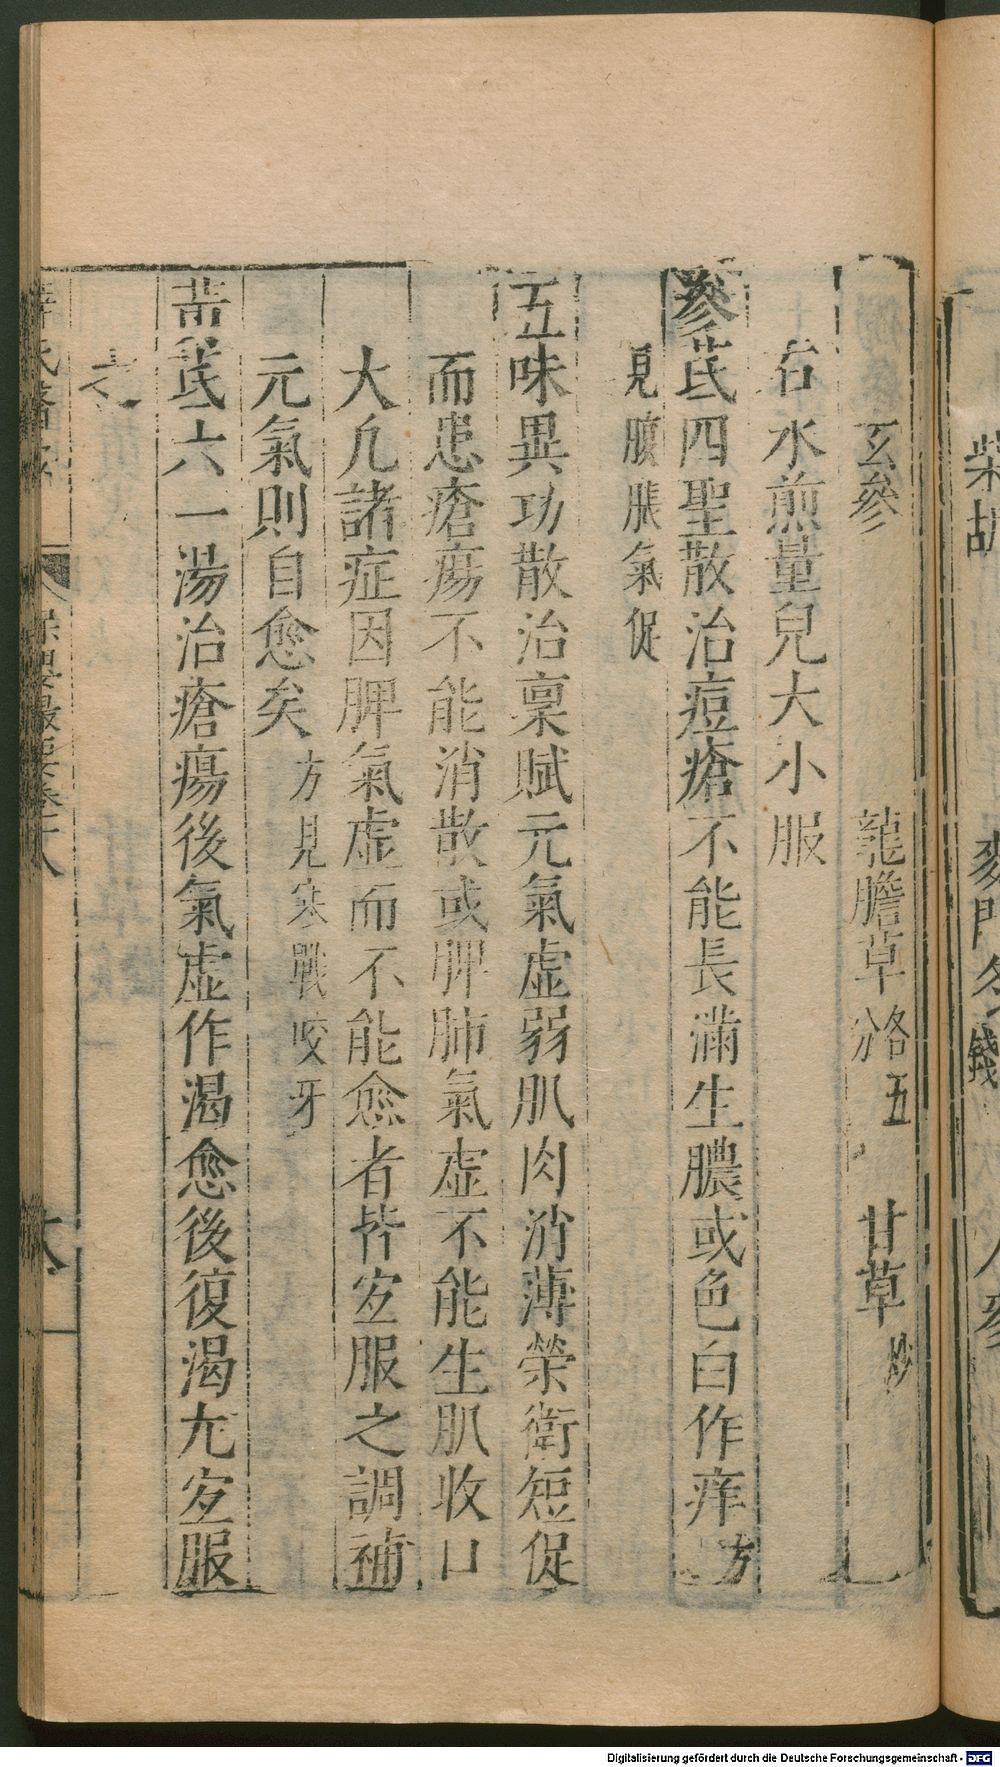 玄參　龍膽草各五分　甘草炒
右水煎量兒大小服
參芪四聖散治痘瘡不能長滿生膿或色白作痒方
見腹脹氣促
五味異功散治稟賦元氣虛弱肌肉消薄榮衛短促
而患瘡瘍不能消散或脾肺氣虛不能生肌收口
大凡諸症因脾氣虛而不能愈者皆宜服之調補
元氣則自愈矣方見寒戰咬牙
黃芪六一湯治瘡瘍後氣虛作渴愈後復渴尤宜服
之
保嬰撮要卷十八
六
柴胡
麥門冬
錢
人參
Digitalisierung gefördert durch die Deutsche Forschungsgemeinschaft - DFG